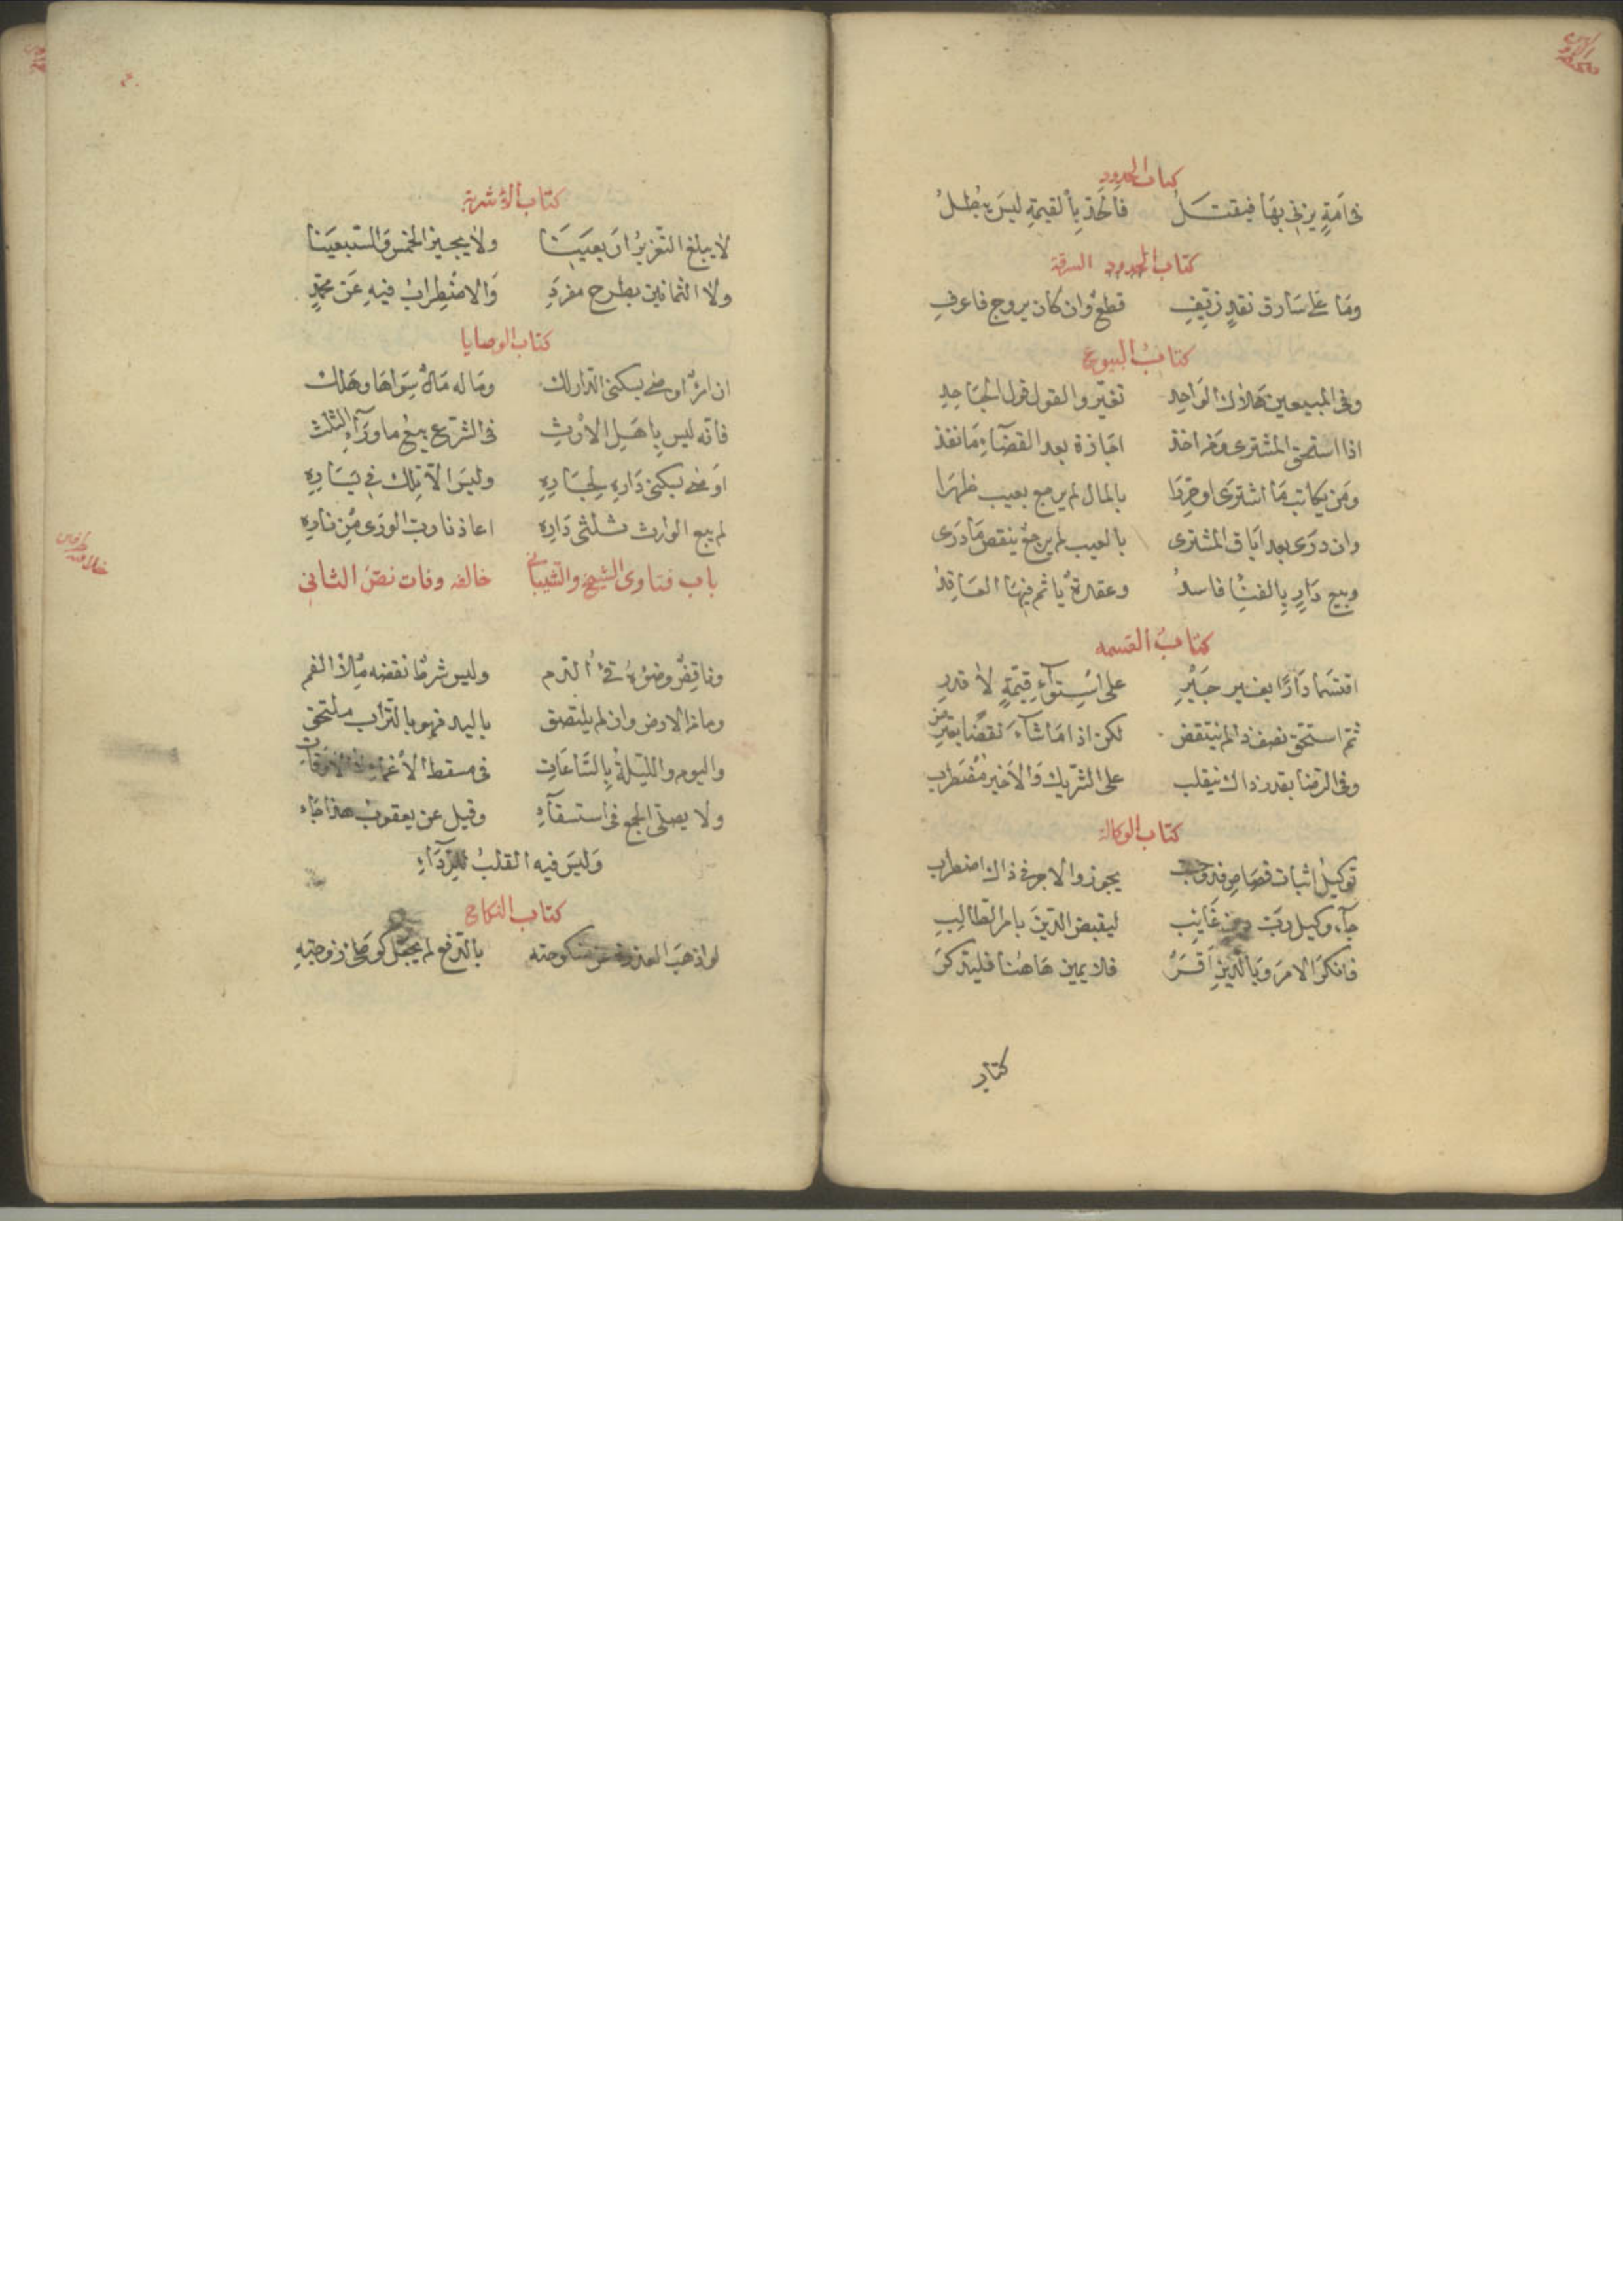 كتاب الحدود
في امَةٍ يزني بهَا فيقتـَـلُ فَالحَدّ بِالقيمَةِ ليسَ يبُطـلُ
كتاب الحدود السرقة
ومَا عَلى سَارق نقدٍ زيّفِ قطعٌ وان كان يروج فاعرفِ
كتابُ البيوع
وفي المبيعين هَلاك الوَاحِدِ تغيّر والقول قول الجَاحِدِ
اذا استحق المشترى ومَن اخذ اجَازة بعد القضآءِ مَا نفذ
ومَن يكاتب مَا اشترَى او حرّرَا بالمال لم يرجع بعيب ظهرَا
وان درَى بعد ابَاق المشترى بالعيب لم يرجع بنقص مَا دَرَى
وبيع دَارٍ بِالفنَا فاسدُ وعقدة يَأثم فيهَا العَاقِدُ
كتابُ القسمه
اقتسَما دَارًا بغـير جَـبْرِ على اسْتِوآءِ قِيمَةٍ لا قدرِ
ثمّ استحق نصف ذا لم ينتقض لكن اذا مَا شَآءَ نقضًا
وفي الرضا بقدر ذاك ينقلب على الشّريك وَالاخير مُضطَرِب
كتاب الوكالة
توكيل اثبات قصَاصٍ قد وجَب يجوز والاخر في ذاك اضطرب
جَآء وكيل رَبّ دين غَايب ليقبض الدّينَ بامر الطالِبِ
فانكرَ الامرَ وَبالدّينِ اَقَـرَّ فلا يمين هَاهُنا فليتذكرَ
كتاب
كتاب الاشربة
لا يبلغ التّعزيرُ اربعيَـنَا ولا يجيز الخمسَ وَالسّبعيَنا
ولا الثمانين بطرح مفردِ وَالاضْطِرابُ فيهِ عَن محمّدٍ
كتاب الوصايا
ان امرؤ اوصَى بسكنى الدّار لك ومَا له مَالٌ سِوَاهَا وهَلك
فانّه ليس بِاهَـلِ الاِرْثِ في الشّرع بيعُ ما ورَآءِ الثلث
اوصَى بسكنى دَارِهِ لِجَـارِهِ وليسَ الاّ تلك في يَسَارِهِ
لم يبع الوارث ثـلثى دَارِهِ اعاذنا ربّ الورَى مِن نارِهِ
باب فتاوى الشيخ والشيبانى خالفه وفات نصّ الثاني
وناقِضٌ وضوُءَهُ قئُ الدّم وليس شرطًا نقضه مِلأ الفم
وما من الارض وان لم يلتصق باليد فهو بالتّراب ملتحق
واليوم والليلةُ بِالسّاعَاتِ في مسقط الاغماء
ولا يصلى الجمع في استسقآءِ وقيل عن يعقوب هذا جَاء
وَليسَ فيه القلبُ للرّدَآءِ
كتاب النكاح
لو اذهبَ العذرة عن منكوحته بالدّفع لم يجعَل كوَطئ زوجتِهِ